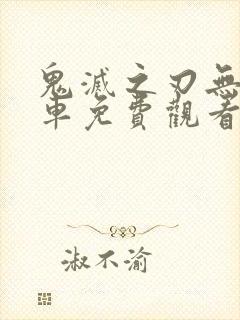 鬼滅之刃無
車免費觀看
淑不渝